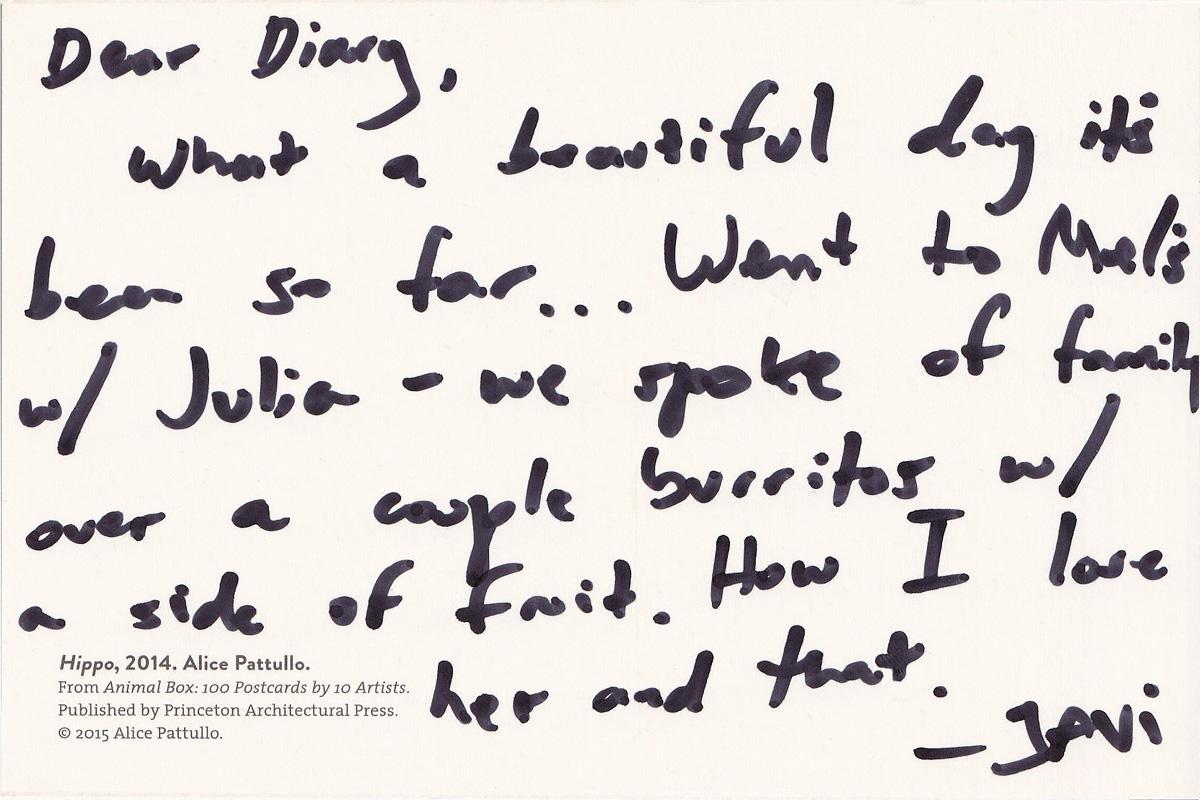 Dear Diary,
what a beautiful day it's
been so far... Went to Mel's
w/ Julia - we spoke of family
over a couple burritos w/
a side of fruit. How I love
her and that.
Hippo, 2014. Alice Pattullo.
From Animal Box: 100 Postcards by 10 Artists.
Published by Princeton Architectural Press.
© 2015 Alice Pattullo.
— JAVi